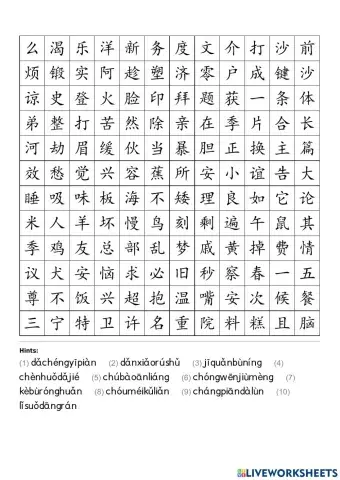 么 渴 乐 洋 新 务 度 文 介 打 沙 前
烦 锻 实 阿 趁 塑 济 零 户 成 键 沙
谅 史 登 火 脸 印 拜 题 获 一 条 体
弟 整 打 苦 然 除 亲 在 季 片 合 长
河 劫 眉 缓 伙 当 暴 胆 正 换 主 篇
效 愁 觉 兴 容 蕉 所 安 小 谊 告 大
睡 吸 味 板 海 不 矮 理 良 如 它 论
米 人 羊 坏 慢 鸟 刻 剩 遍 午 鼠 其
季 鸡 友 总 部 乱 梦 戚 黄 掉 费 情
议 犬 安 恼 求 必 旧 秒 察 春 一 五
尊 不 饭 兴 超 抱 温 嘴 安 次 候 餐
三 宁 特 卫 许 名 重 院 料 糕 且 脑
Hints:
(1) dǎchéngyīpiàn (2) dǎnxiǎorúshǔ (3) jīquǎnbùníng (4)
chènhuǒdǎjié (5) chúbàoānliáng (6) chóngwēnjiùmèng (7)
kèbùrónghuǎn (8) chóuméikǔliǎn (9) chángpiāndàlùn (10)
lǐsuǒdāngrán
LIVEWORKSHEETS